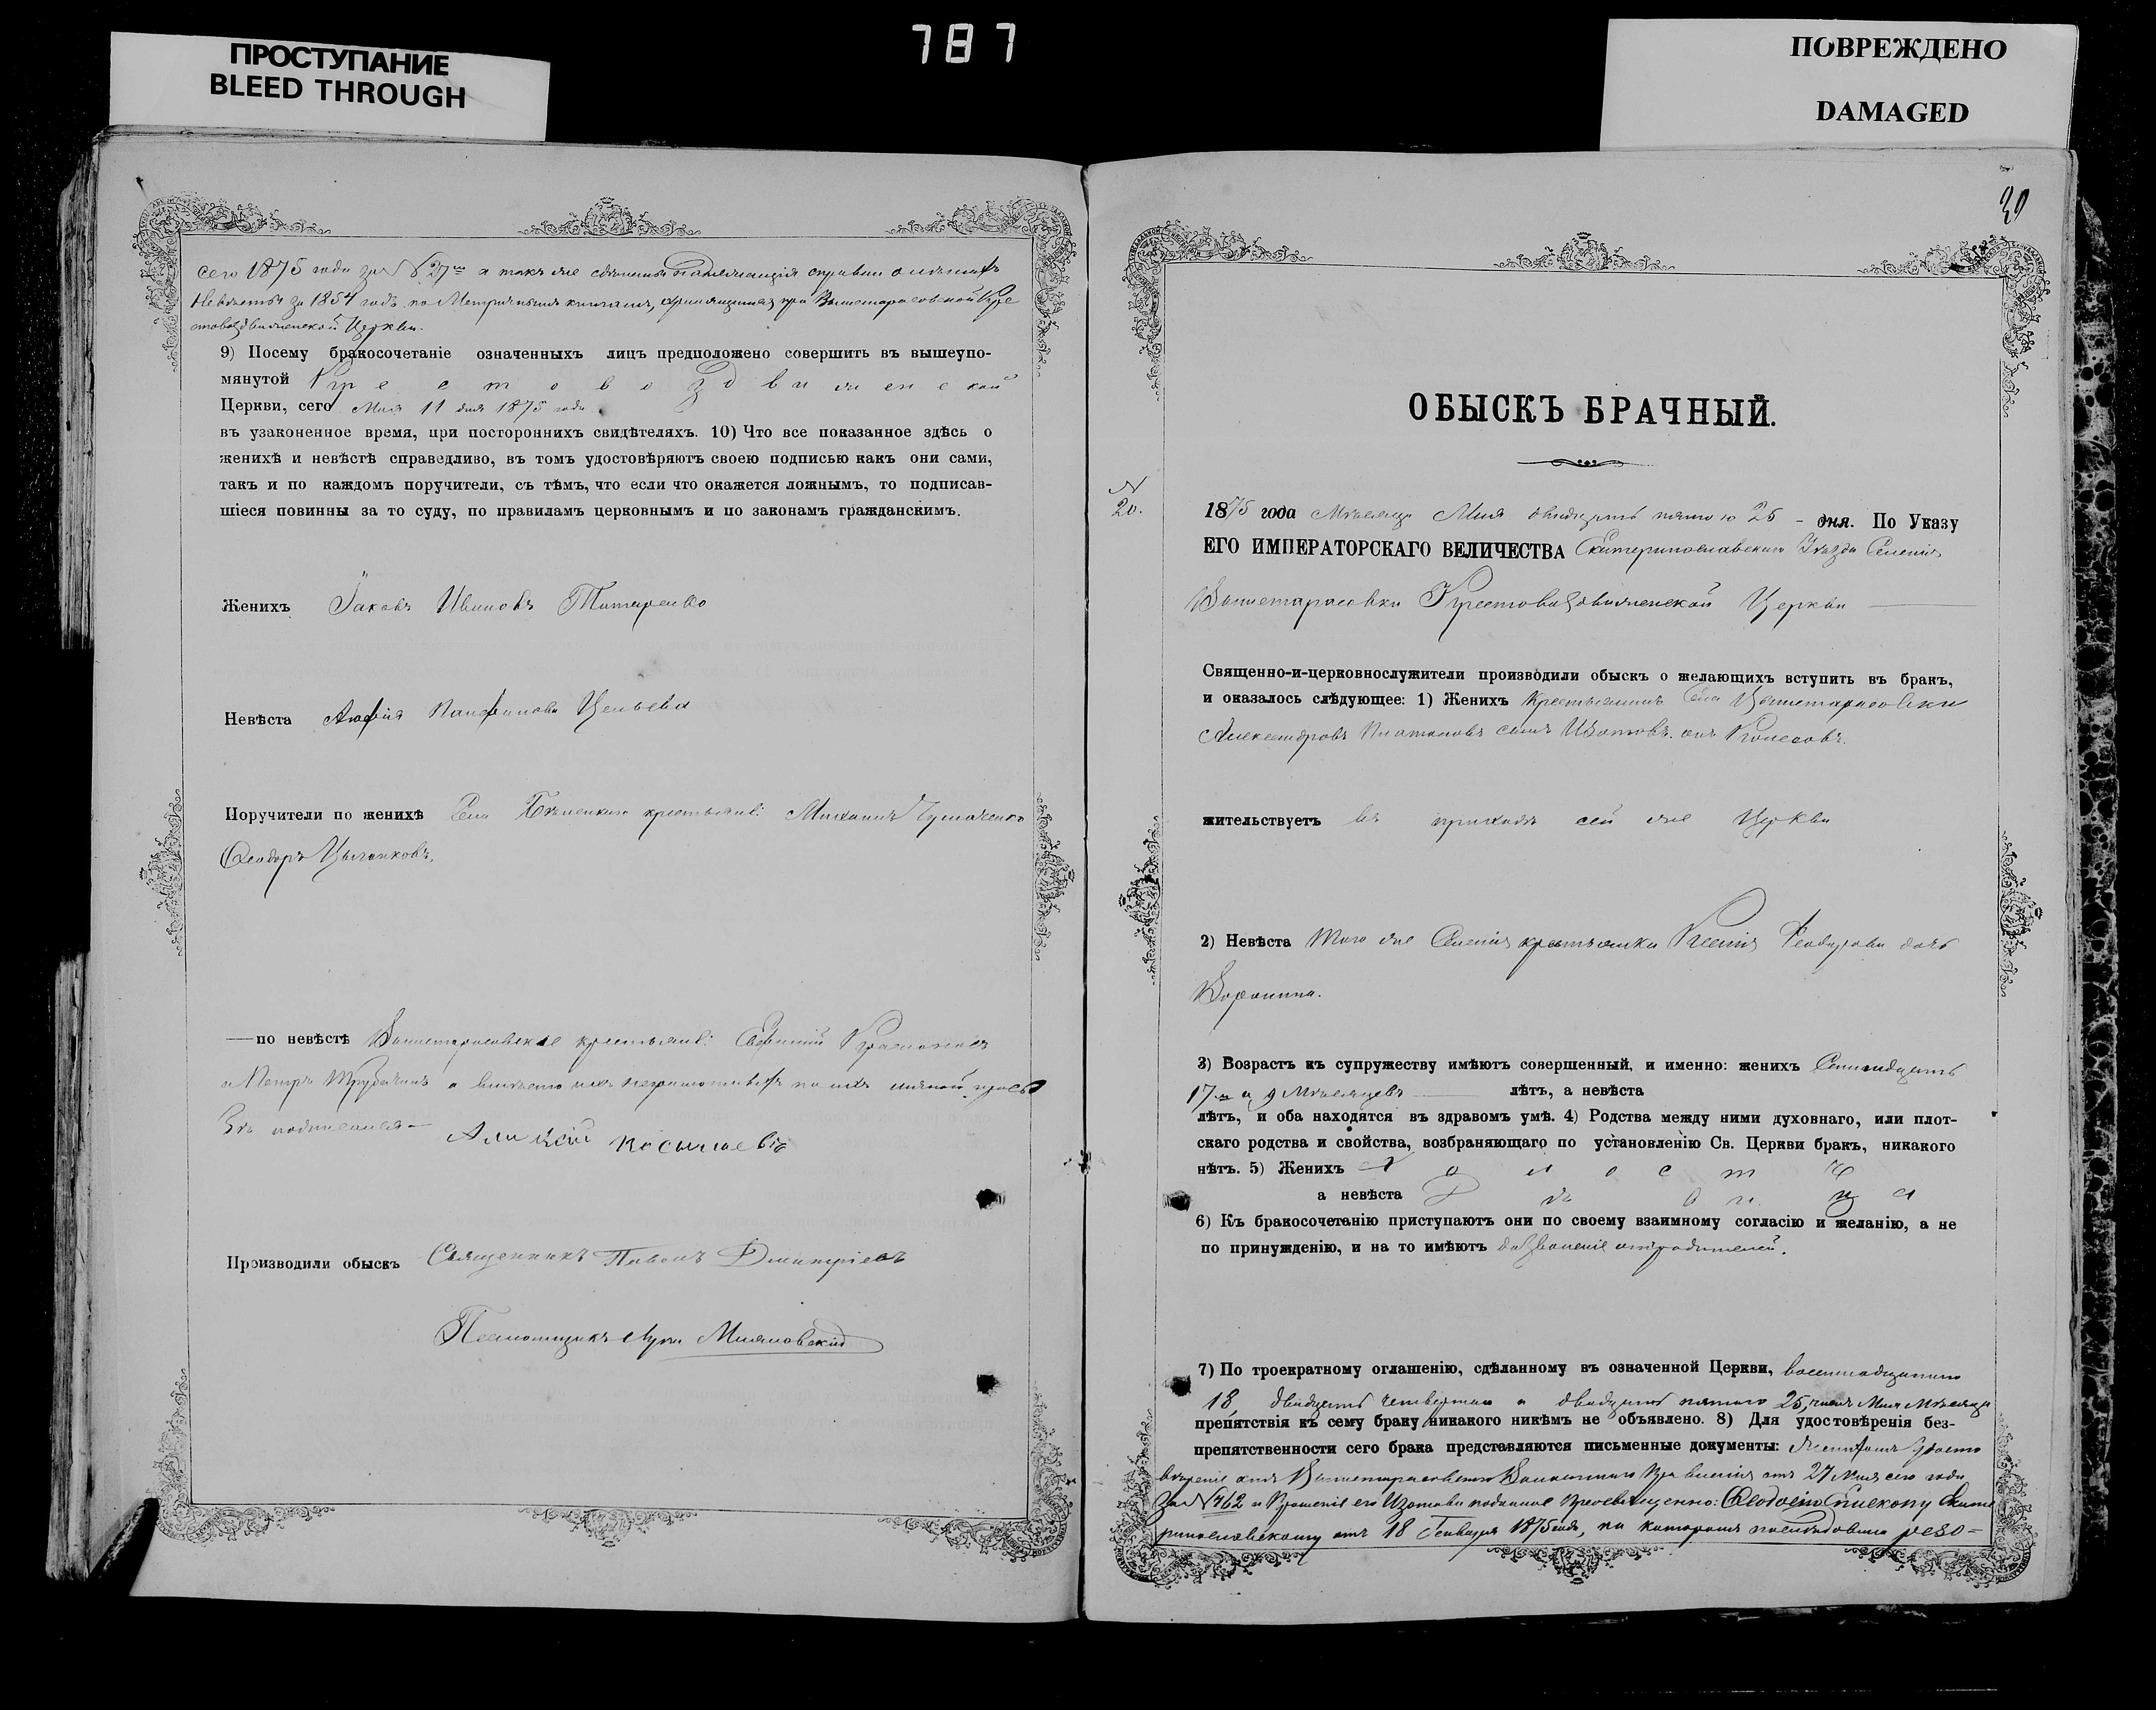 787
ПРОСТУПАНИЕ
BLEED THROUGH
ПОВРЕЖДЕНО
DAMAGED
сего 1875 года за № 27 а такъ же надлежащія справки о лѣтахъ
Невѣсты за 1854 годъ по Метрическимъ книгамъ, хранящимся при Вышетарасовской Кре
стовоздвиженской Церкви.
9) Посему бракосочетаніе означенныхъ лицъ предположено совершить въ вышеупо-
мянутой Крестовоздвиженской
Церкви, сего Мая 11 дня 1875 года
въ узаконенное время, при постороннихъ свидѣтеляхъ. 10) Что все показанное здѣсь о
женихѣ и невѣстѣ справедливо, въ томъ удостовѣряютъ своею подписью какъ они сами,
такъ и по каждомъ поручители, съ тѣмъ, что если что окажется ложнымъ, то подписав-
шіеся повинны за то суду, по правиламъ церковнымъ и по законамъ гражданскимъ.
Женихъ Іаковъ Ивановъ Титаренко
Невѣста
Поручители по женихѣ Села крестьяне: Михаилъ
Ѳеодоръ
—по невѣстѣ Вышетарасовские крестьяне: Евфимій
и Петръ а вмѣсто ихъ неграмотныхъ по ихъ личной прось
бѣ подписался— Алексій
Производили обыскъ Священникъ Павелъ Дмитріевъ
Псаломщикъ
39
ОБЫСКЪ БРАЧНЫЙ.
№
20.
1875 года Мѣсяца Мая двадцать пятого 25 - дня. По Указу
ЕГО ИМПЕРАТОРСКАГО ВЕЛИЧЕСТВА Екатеринославскаго Уѣзда Селенія
Вышетарасовки Крестовоздвиженской Церкви
Священно-и-церковнослужители производили обыскъ о желающихъ вступить въ бракъ,
и оказалось слѣдующее: 1) Женихъ Крестьянинъ Села Вышетарасовки
Александръ Платоновъ сынъ Изотовъ онъ Колесовъ.
жительствуетъ въ приходѣ сей же Церкви
2) Невѣста того же Селенія крестьянка Ксенія Ѳеодорова дочь
Воронина.
3) Возрастъ къ супружеству имѣютъ совершенный, и именно: женихъ Семнадцать
17 и 9 Мѣсяцевъ лѣтъ, а невѣста
лѣтъ, и оба находятся въ здравомъ умѣ. 4) Родства между ними духовнаго, или плот-
скаго родства и свойства, возбраняющаго по установленію Св. Церкви бракъ, никакого
нѣтъ. 5) Женихъ Холостъ
а невѣста Дѣвица
6) Къ бракосочетанію приступаютъ они по своему взаимному согласію и желанію, а не
по принужденію, и на то имѣютъ дозволеніе отъ родителей.
7) По троекратному оглашенію, сдѣланному въ означенной Церкви, восемнадцатаго
18, двадцать четвертаго и двадцать пятаго 25, чиселъ Мая Мѣсяца
препятствія къ сему браку никакого никѣмъ не объявлено. 8) Для удостовѣренія без-
препятственности сего брака представляются письменные документы: Женихомъ удосто
вѣреніе отъ Вышетарасовскаго Волостнаго Правленія отъ 27 Мая сего года
за № 762 и Прошеніе его Изотова поданное Преосвященно: Ѳеодосію Епископу Екате
ринославскому отъ 18 Генваря 1875 года, на которомъ послѣдовала резо=